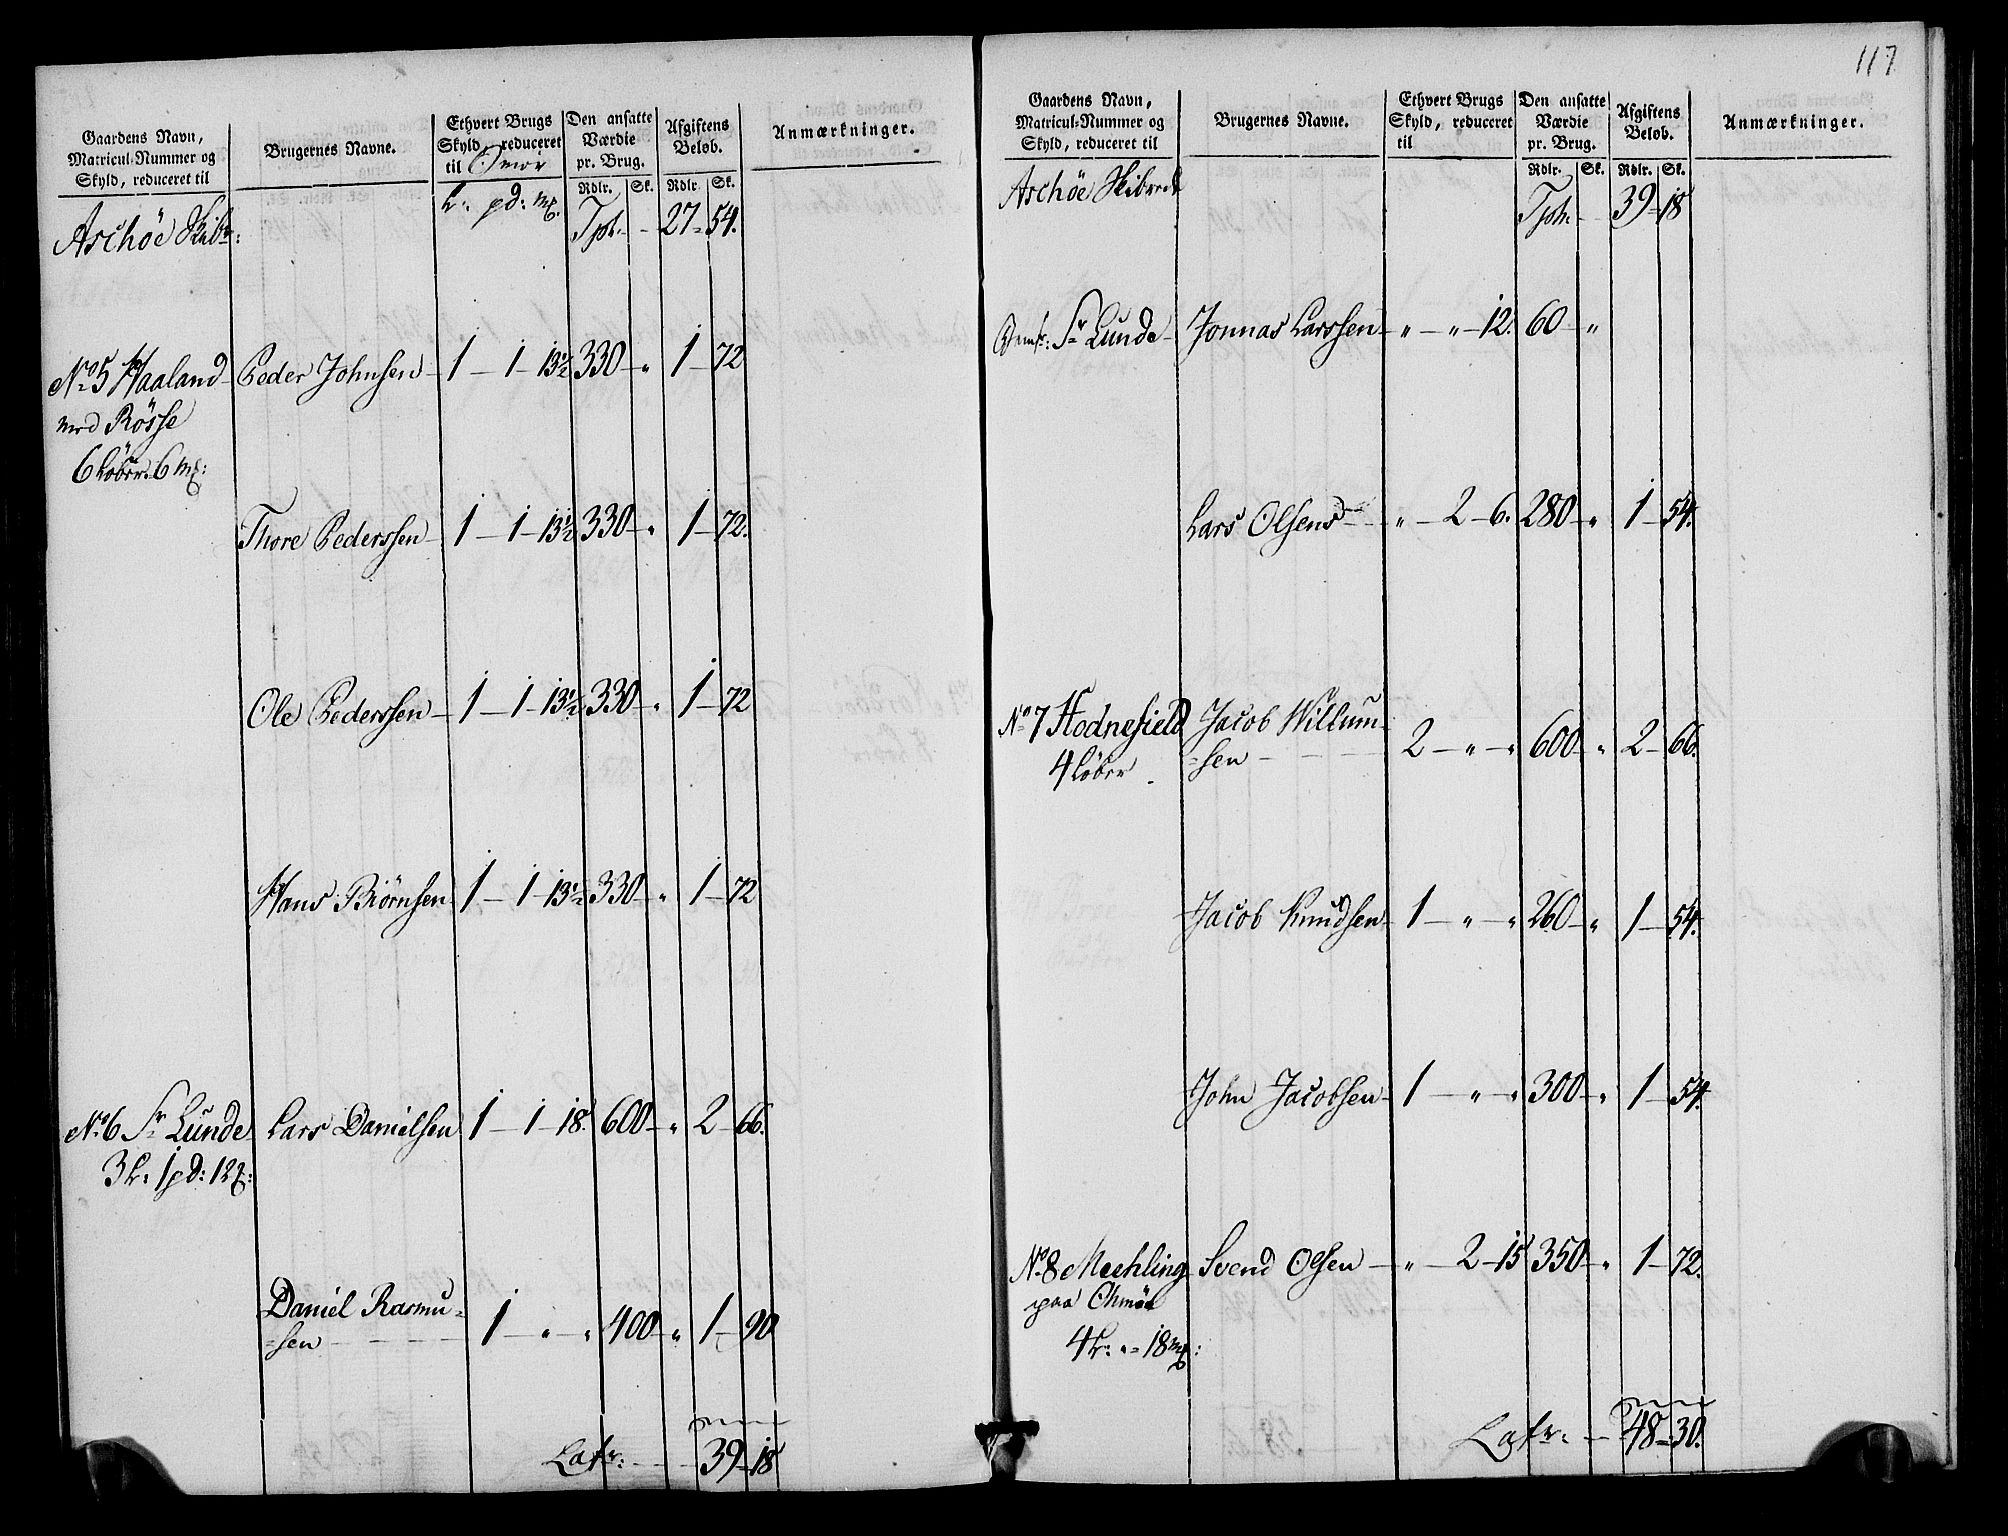 Gaardens Navn,
Matricul-Nummer og
Skyld, reduceret til
Brugernes Navne.
Ethvert Brugs
Skyld, reduceret
til Smör
Den ansatte
Værdie
pr. Brug.
Afgiftens
Beløb.
Anmærkninger.
Rdlr. Sk. Rdlr. Sk.
Aschöe Skibr: L: pd: mk. Tpt. - - 27 - 54.
No 5 Haaland Peder Johnsen - 1 - 1 - 13½ 330 - " 1 - 72
med Rösse
6 Löber. 6 mk:
Thore Pederssen - 1 - 1 - 13½ 330 - " 1 - 72.
Ole Pederssen - 1 - 1 - 13½ 330 - " 1 - 72
Hans Biörnsen 1 - 1 - 13½ 330 - " 1 - 72
No 6 Sr Lunde Lars Danielsen 1 - 1 - 18. 600 - " 2 - 66.
3 L: 1 pd: 12 mk:
Daniel Rasmu=
=sen - - - - 1 - " - " 400 - " 1 - 90
Latr: - - - 39 - 18
117
Gaardens Navn,
Matricul-Nummer og
Skyld, reduceret til
Brugernes Navne.
Ethvert Brugs
Skyld, reduceret
til
Den ansatte
Værdie
pr. Brug.
Afgiftens
Beløb.
Anmærkninger.
Rdlr. Sk. Rdlr. Sk.
Aschöe Skibrede Tpt. - - 39 - 18
Sr Lunde - Jonnas Larssen - " - " - 12. 60 - "
Lars Olsen - - " - 2 - 6. 280 - " 1 - 54.
No 7 Hodnefield Jacob Willum-
4 Löber =sen - - - - 2 - " - " 600 - " 2 - 66.
Jacob Knudsen - 1 - " - " 260 - " 1 - 54.
John Jacobsen - 1 - " - " 300 - " 1 - 54.
No 8 Meehling Svend Olsen - " - 2 - 15 350 - " 1 - 72.
paa
4 L: " - 18 mk:
Latr: - - 48 - 30.